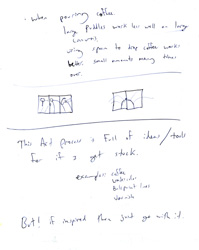 • When pouring coffee
large puddles work less well on large
canvases,
using spoon to drip coffee works
better. small amounts many times
over.
This Art process is Full of ideas/tools
For if I get stuck.
examples: coffee
Watercolor
Ballpoint lines
Varnish
But! if inspired then just go with it.